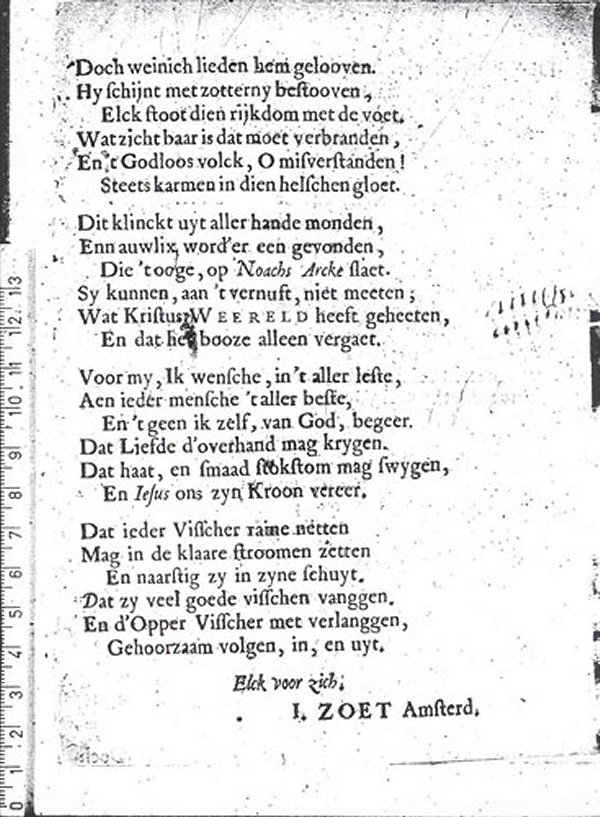 Doch weinich lieden hem gelooven.
Hy ſchijnt met zotterny beſtooven,
Elck ſtoot dien rijkdom met de voet.
Wat zichtbaar is dat moet verbranden,
En 't Godloos volck, O miſverſtanden!
Steets karmen in dien helſchen gloet.
Dit klinckt uyt aller hande monden,
Enn auwlix word'er een gevonden,
Die 't ooge, op Noachs Arcke ſlaet.
Sy kunnen, aan 't vernuft, niet meeten;
Wat Kriſtus WEERELD heeft geheeten,
En dat het booze alleen vergaet.
Voor my, Ik wenſche, in 't aller leſte,
Aen ieder menſche 't aller beſte,
En 't geen ik zelf, van God, begeer.
Dat Liefde d'overhand mag krygen.
Dat haat, en ſmaad ſtokſtom mag ſwygen,
En Ieſus ons zyn Kroon vereer.
Dat ieder Viſſcher raine netten
Mag in de klaare ſtroomen zetten
En naarſtig zy in zyne ſchuyt.
Dat zy veel goede viſſchen vanggen.
En d'Opper Viſſcher met verlanggen,
Gehoorzaam volgen, in, en uyt.
Elck voor zich.
I. ZOET Amſterd.
0 1 2 3 4 5 6 7 8 9 10 11 12 13